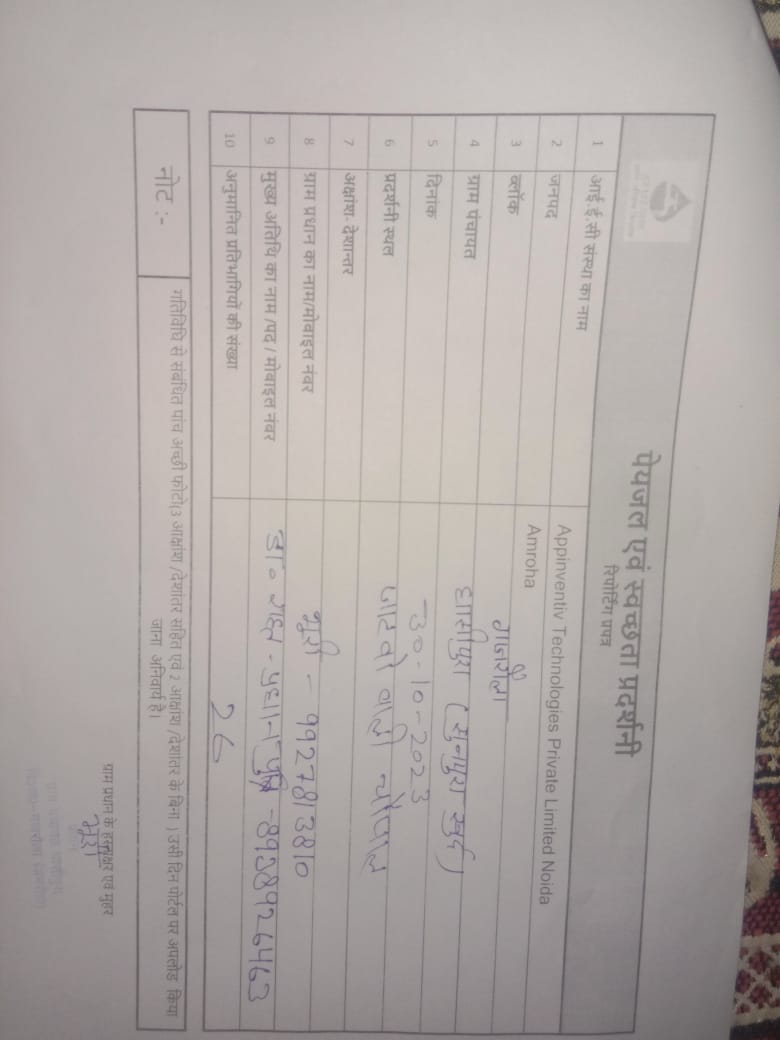 पेयजल एवं स्वच्छता प्रदर्शनी
रिपोर्टिंग प्रपत्र
1 आई.ई.सी संस्था का नाम Appinventiv Technologies Private Limited Noida
2 जनपद Amroha
3 ब्लॉक गजरौला
4 ग्राम पंचायत घासीपुरा (सुनपुरा खुर्द)
5 दिनांक 30-10-2023
6 प्रदर्शनी स्थल जाटवो वाली चौपाल
7 अक्षांश- देशान्तर
8 ग्राम प्रधान का नाम/मोबाइल नंबर भूरी - 9927813810
9 मुख्य अतिथि का नाम /पद / मोबाइल नंबर डा० - प्रधान - 8938926463
10 अनुमानित प्रतिभागियों की संख्या 26
नोट :- गतिविधि से संबंधित पांच अच्छी फोटो(3 आक्षांश /देशांतर सहित एवं 2 आक्षांश /देशांतर के बिना ) उसी दिन पोर्टल पर अपलोड किया
जाना अनिवार्य है।
ग्राम प्रधान के हस्ताक्षर एवं मुहर
भूरी